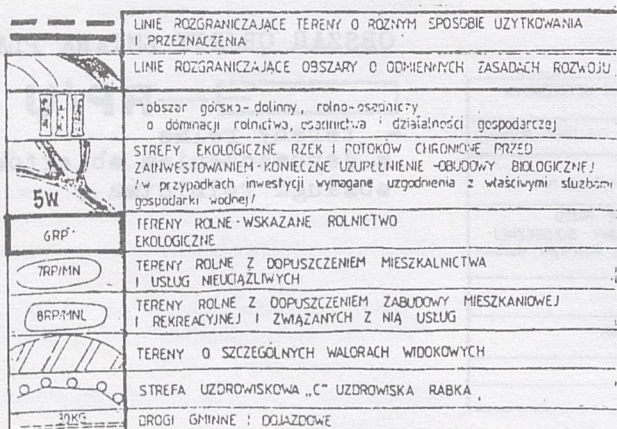 LINIE ROZGRANICZAJĄCE TERENY O RÓŻNYM SPOSOBIE UŻYTKOWANIA
I PRZEZNACZENIA
LINIE ROZGRANICZAJĄCE OBSZARY O ODMIENNYCH ZASADACH ROZWOJU
-obszar górsko-dolinny, rolno-osadniczy
o dominacji rolnictwa, osadnictwa i działalności gospodarczej
STREFY EKOLOGICZNE RZEK I POTOKÓW CHRONIONE PRZED
ZAINWESTOWANIEM-KONIECZNE UZUPEŁNIENIE -OBUDOWY BIOLOGICZNEJ
/w przypadkach inwestycji wymagane uzgodnienia z właściwymi służbami
gospodarki wodnej/
5W
6RP
TERENY ROLNE-WSKAZANE ROLNICTWO
EKOLOGICZNE
7RP/MN
TERENY ROLNE Z DOPUSZCZENIEM MIESZKALNICTWA
I USŁUG NIEUCIĄŻLIWYCH
8RP/MNL
TERENY ROLNE Z DOPUSZCZENIEM ZABUDOWY MIESZKANIOWEJ
I REKREACYJNEJ I ZWIĄZANYCH Z NIĄ USŁUG
TERENY O SZCZEGÓLNYCH WALORACH WIDOKOWYCH
STREFA UZDROWISKOWA „C" UZDROWISKA RABKA
DROGI GMINNE I DOJAZDOWE